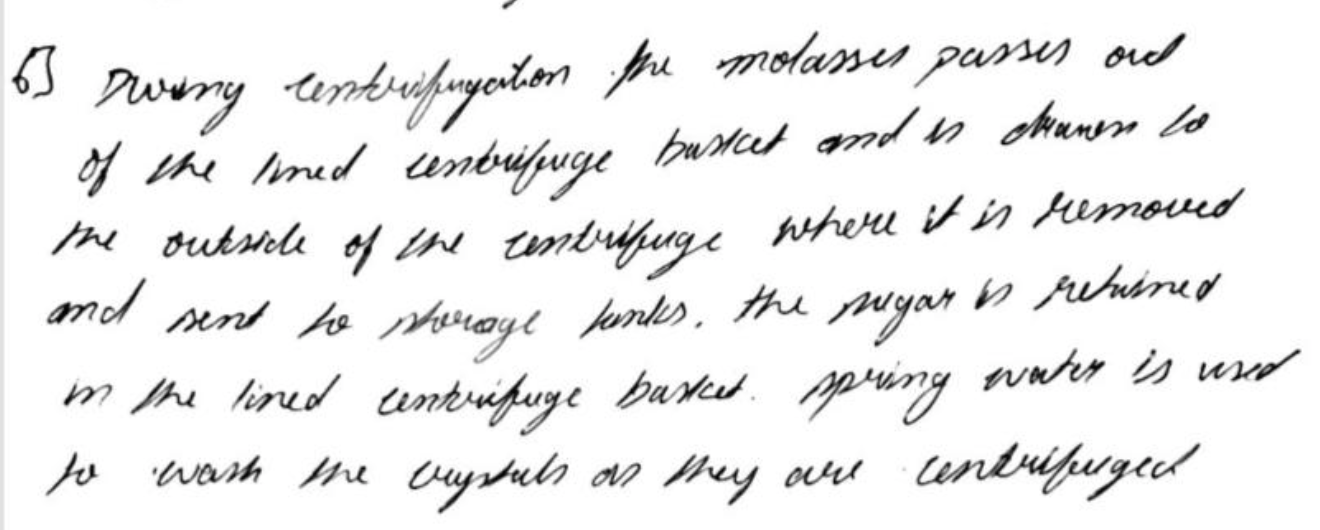 6] During centrifugation the molasses passes out
of the lined centrifuge basket and is drawn to
the outside of the centrifuge where it is removed
and sent to storage tanks. the sugar is retained
in the lined centrifuge basket. spring water is used
to wash the crystals as they are centrifuged